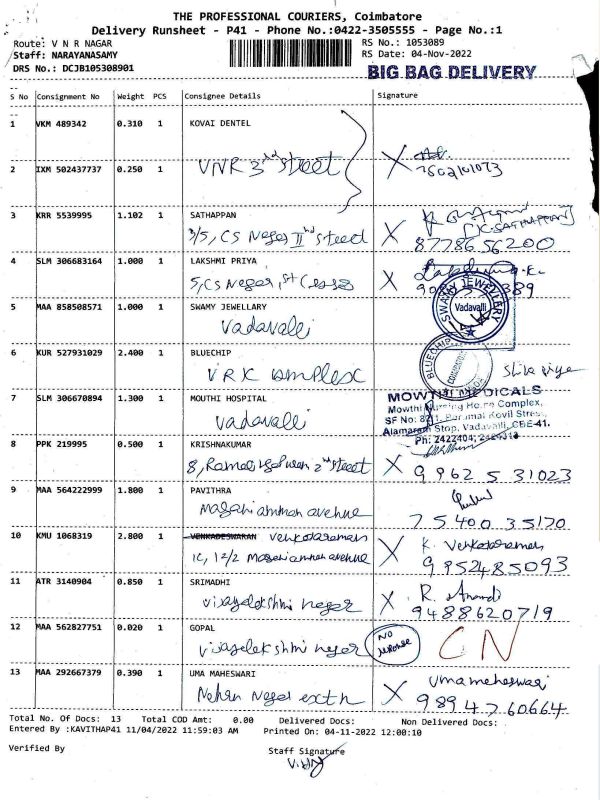 THE PROFESSIONAL COURIERS, Coimbatore
Delivery Runsheet - P41 - Phone No.:0422-3505555 - Page No.:1
Route: V N R NAGAR
RS No.: 1053089
Staff: NARAYANASAMY
RS Date: 04-Nov-2022
DRS No.: DCJB105308901
BIG BAG DELIVERY
S No Consignment No Weight PCS Consignee Details Signature
1 VKM 489342 0.310 1 KOVAI DENTEL
2 IXM 502437737 0.250 1 VNR 3rd street
3 KRR 5539995 1.102 1 SATHAPPAN
3/5, CS Nagar II nd street
(K. SATHAPPAN)
8778656200
4 SLM 306683164 1.000 1 LAKSHMI PRIYA
5, CS Nagar, 1st Cross
5 MAA 858508571 1.000 1 SWAMY JEWELLARY
Vadavalli
SWAMY JEWELLERY
Vadavalli
6 KUR 527931029 2.400 1 BLUECHIP
VRK complex
BLUECHIP
7 SLM 306670894 1.300 1 MOUTHI HOSPITAL
Vadavalli
MOWTHI MEDICALS
Mowthi Nursing Home Complex,
SF No: Perumal Kovil Street,
Alamaram Stop, Vadavalli, CBE-41.
Ph: 2422404;
8 PPK 219995 0.500 1 KRISHNAKUMAR
2nd street
X 99625 31023
9 MAA 564222999 1.800 1 PAVITHRA
Mariamman avenue
75400 35170
10 KMU 1068319 2.800 1 VENKADESWARAN Venkataraman
1C, 12/2 Mariamman avenue
X K. Venkataraman
9952485093
11 ATR 3140904 0.850 1 SRIMADHI
vijayalakshmi nagar
X R. Anandi
9488620719
12 MAA 562827751 0.020 1 GOPAL
vijayalakshmi nagar
NO
response
CN
13 MAA 292667379 0.390 1 UMA MAHESWARI
Nehru Nagar extn
X Umamaheswari
98947 60664
Total No. Of Docs: 13 Total COD Amt: 0.00 Delivered Docs: Non Delivered Docs:
Entered By :KAVITHAP41 11/04/2022 11:59:03 AM Printed On: 04-11-2022 12:00:10
Verified By
Staff Signature